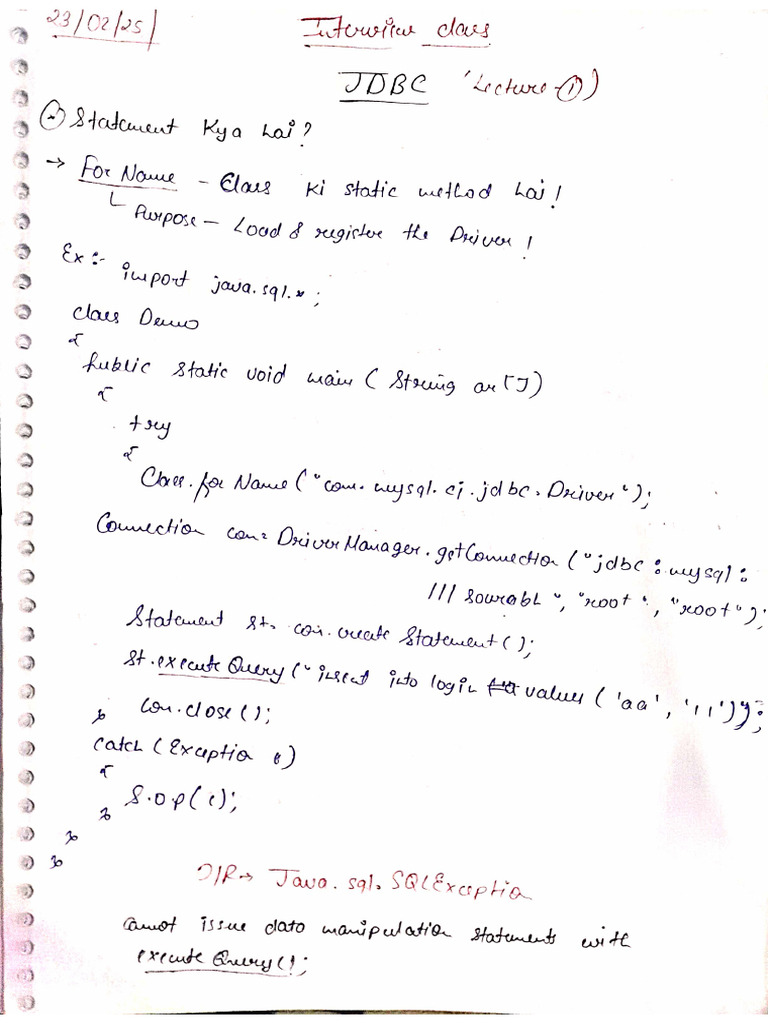 23/02/25
Interview class
JDBC (Lecture-①)
* Statement Kya hai?
→ ForName - Class ki static method hai!
└ Purpose - Load & register the Driver!
Ex:- import java.sql.*;
class Demo
{
public static void main ( String ar[])
{
try
{
Class.forName("com.mysql.cj.jdbc.Driver");
Connection con= DriverManager.getConnection ("jdbc:mysql:
///sourabh", "root", "root");
Statement st= con.createStatement();
st.executeQuery("insert into login values ('aa', '11')");
} con.close();
catch (Exception e)
{
S.O.P(e);
}
}
}
O/P→ Java.sql.SQLException
cannot issue data manipulation statements with
executeQuery();